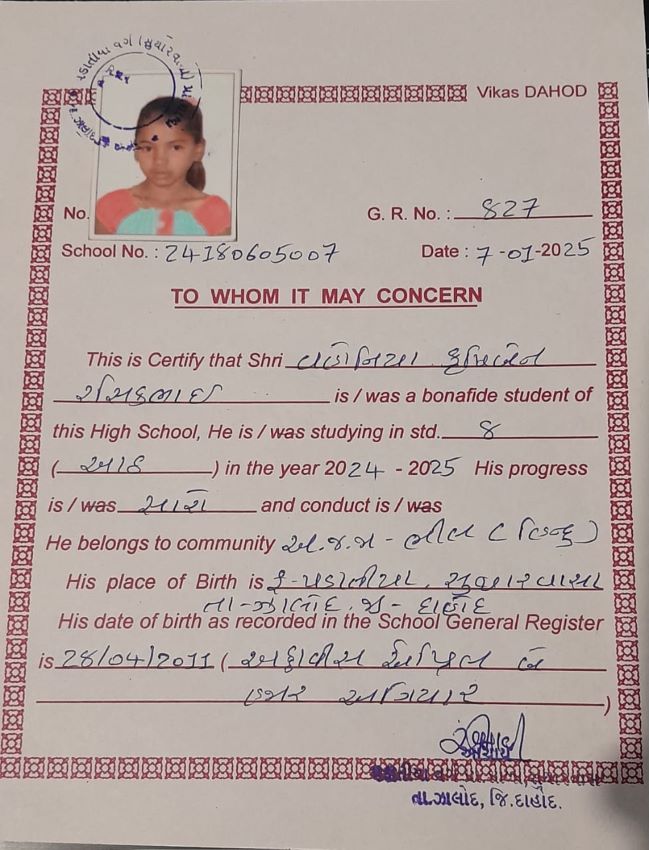 Vikas DAHOD
No.
G. R. No. : 827
School No. : 24180605007
Date : 7-01-2025
TO WHOM IT MAY CONCERN
This is Certify that Shri
is / was a bonafide student of
this High School, He is / was studying in std. 8
( આઠ ) in the year 2024 - 2025 His progress
is / was સારો and conduct is / was
He belongs to community અ.જ.જ - ભીલ ( હિન્દુ )
His place of Birth is
તા - ઝાલોદ. જી - દાહોદ
His date of birth as recorded in the School General Register
is 28/04/2011 ( અઠ્ઠાવીસ એપ્રિલ બે
હજાર અગિયાર )
તા.ઝાલોદ, જિ.દાહોદ.